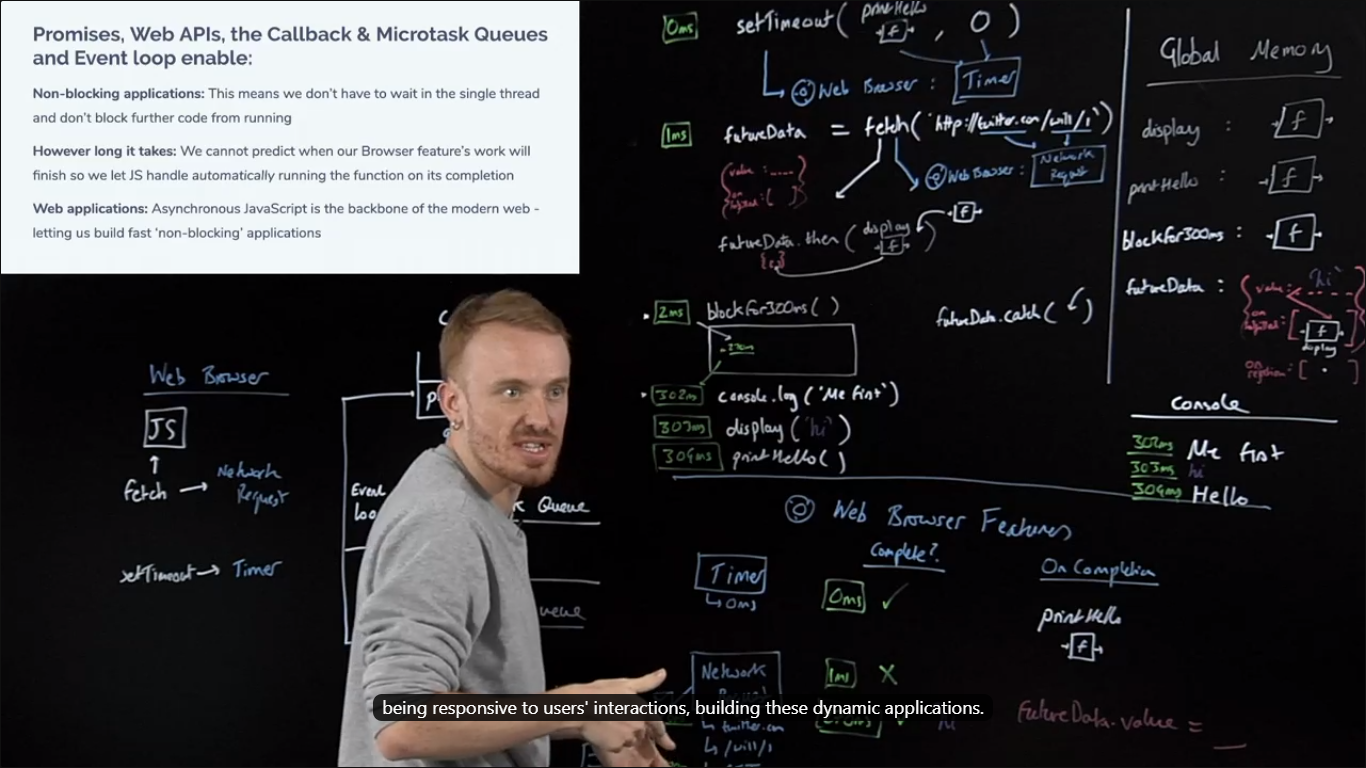 Promises, Web APIs, the Callback & Microtask Queues
and Event loop enable:
Non-blocking applications: This means we don't have to wait in the single thread
and don't block further code from running
However long it takes: We cannot predict when our Browser feature's work will
finish so we let JS handle automatically running the function on its completion
Web applications: Asynchronous JavaScript is the backbone of the modern web -
letting us build fast 'non-blocking' applications
0ms setTimeout( printHello , 0 )
f
Web Browser : Timer
1ms futureData = fetch('http://twitter.com/will/1')
value : ....
Web Browser : Network
Request
futureData.then( display )
f
f
2ms blockfor300ms( )
futureData.catch( )
302ms console.log('Me first')
303ms display('hi')
304ms printHello( )
Global Memory
display : f
printHello : f
blockfor300ms : f
futureData :
value: 'hi'
f
display
Console
302ms Me first
303ms hi
304ms Hello
Web Browser
JS
fetch → Network
Request
setTimeout → Timer
Event
Queue
Web Browser Features
Complete?
On Completion
Timer
0ms
0ms ✓
printHello
f
Network
1ms X
twitter.com
/will/1
futureData.value =
being responsive to users' interactions, building these dynamic applications.